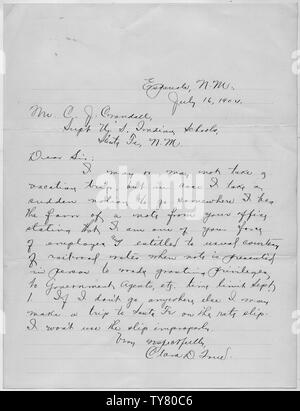 Espanola, N.M.
July 16, 1902.
Mr. C. J. Crandall,
Supt U. S. Indian Schools,
Santa Fe, N.M.
Dear Sir:
I may or may not take a
vacation trip but in case I take a
sudden notion to go somewhere I beg
the favor of a note from your office
stating that I am one of your force
of employees & entitled to usual courtesy
of railroad rates when note is presented
in person to roads granting privileges
to Government Agents, etc. time limit Sept.
1. If I don't go anywhere else I may
make a trip to Santa Fe on the rate slip.
I won't use the slip improperly.
Very respectfully,
Clara D. True.
alamy
www.alamy.com
TY80C6